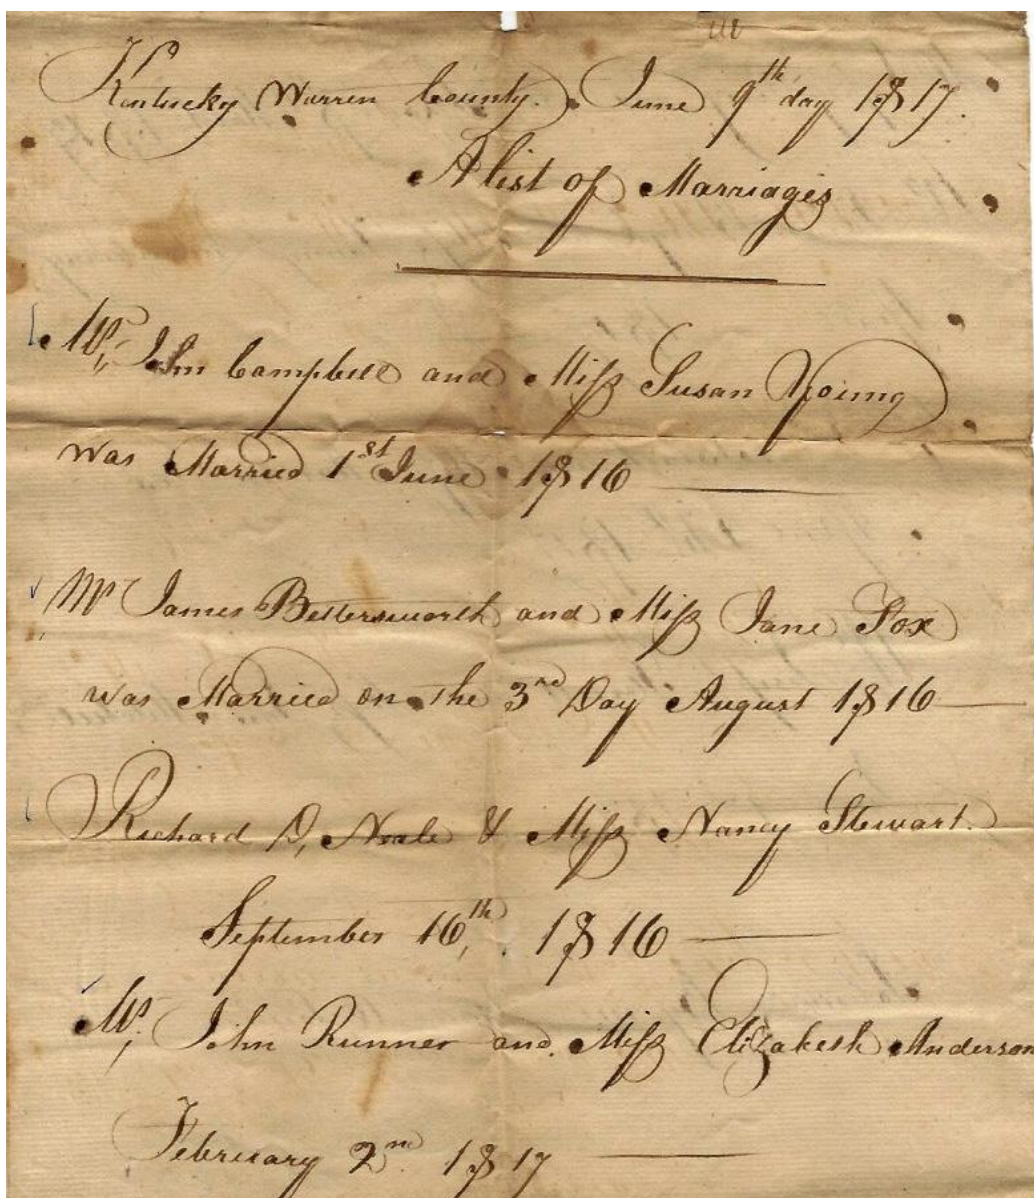 Kentucky Warren County. June 9th day 1817.
A list of Marriages
Mr. John Campbell and Miss Susan Young
was Married 1st June 1816
Mr James Bettersworth and Miss Jane Fox
was Married on the 3rd Day August 1816
Richard D, Neale & Miss Nancy Stewart.
September 16th, 1816
Mr. John Runner and Miss Elizabeth Anderson
February 2nd 1817